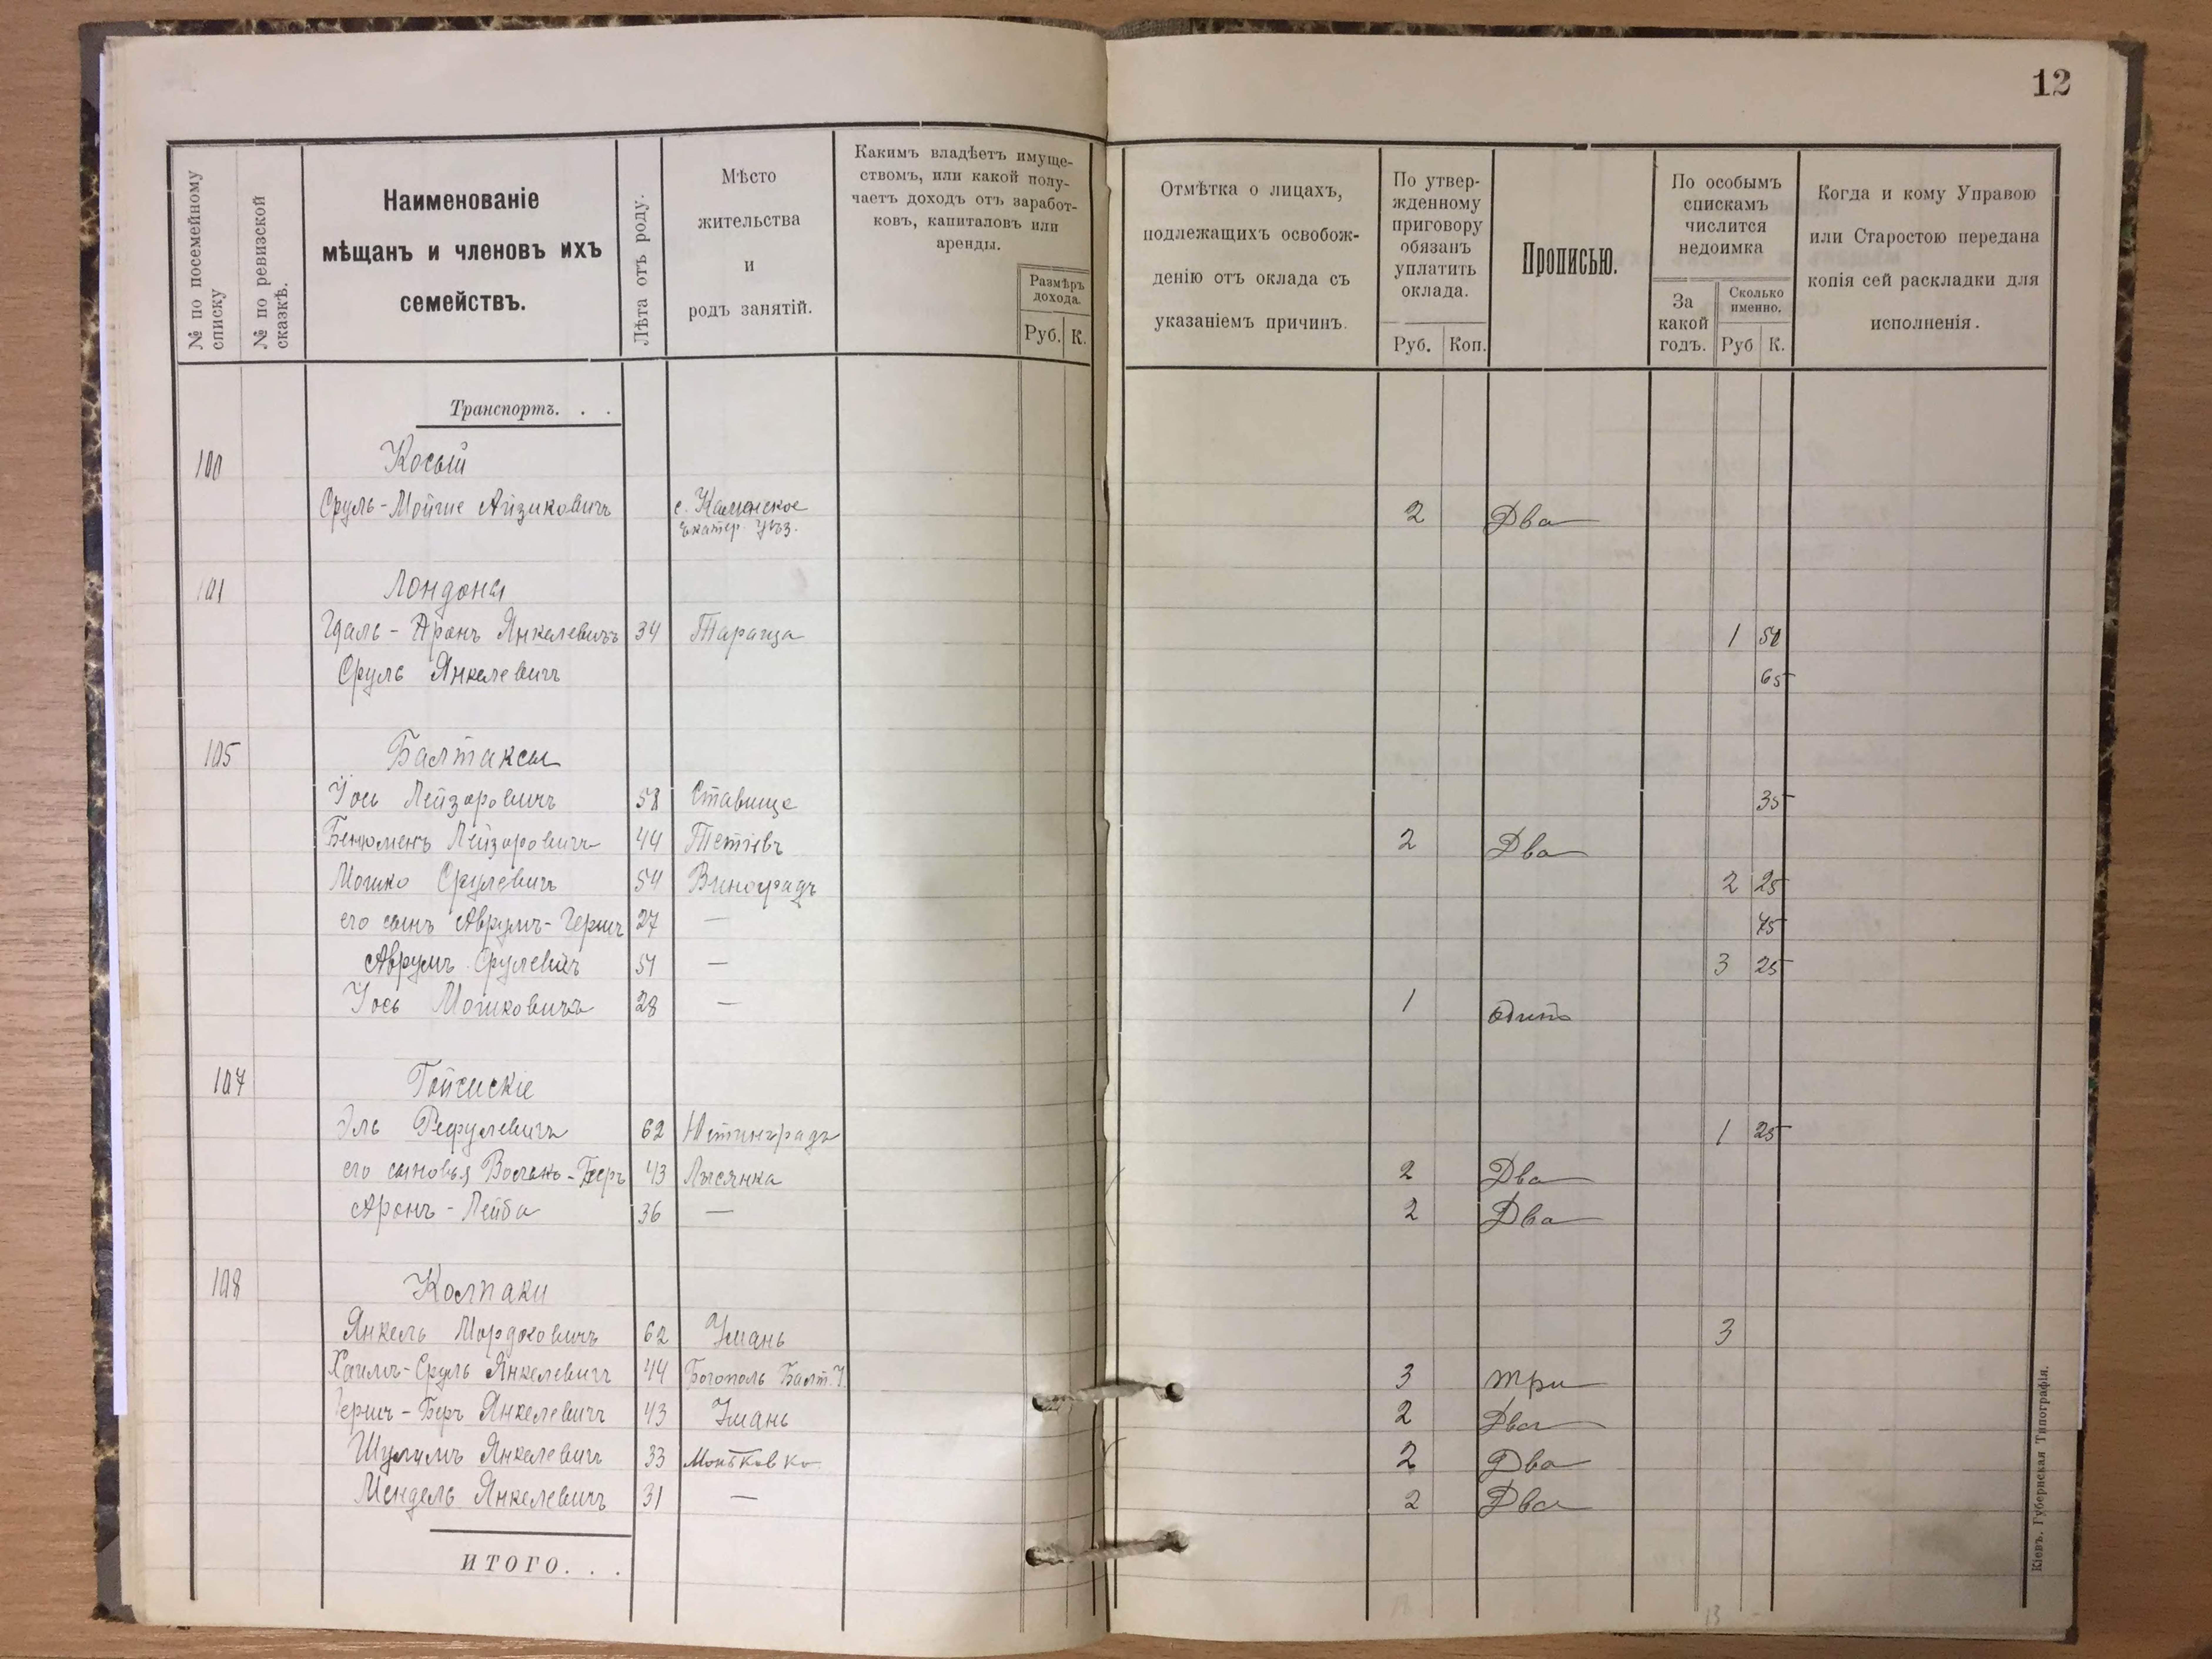 12
№ по посемейному списку
№ по ревизской сказкѣ.
Наименованіе
мѣщанъ и членовъ ихъ
семействъ.
Лѣта отъ роду.
Мѣсто
жительства
и
родъ занятій.
Какимъ владѣетъ имуще-
ствомъ, или какой полу-
чаетъ доходъ отъ заработ-
ковъ, капиталовъ или
аренды.
Размѣръ
дохода.
Руб. К.
Отмѣтка о лицахъ,
подлежащихъ освобож-
денію отъ оклада съ
указаніемъ причинъ.
По утвер-
жденному
приговору
обязанъ
уплатить
оклада.
Руб. Коп.
Прописью.
По особымъ
спискамъ
числится
недоимка
За
какой
годъ.
Сколько
именно.
Руб К.
Когда и кому Управою
или Старостою передана
копія сей раскладки для
исполненія.
Транспортъ. . .
100 Косый
Сруль-Мойше Айзиковичъ с. Каменское 2 Два
Екатер. Уѣз.
101 Лондоны
Гдаль-Аронъ Янкелевичъ 34 Тараща 1 50
Сруль Янкелевичъ 65
105 Балтаксы
Іось Лейзоровичъ 58 Ставище 35
Бенюменъ Лейзоровичъ 44 Тетіевъ 2 Два
Мошко Срулевичъ 54 Виноградъ 2 25
его сынъ Аврумъ-Гершъ 27 — 75
Аврумъ Срулевичъ 51 — 3 25
Іось Мошковичъ 28 — 1 Одинъ
107 Гойсискіе
Эль Рефулевичъ 62 Юстинградъ 1 25
его сыновья Волько-Беръ 43 Лысянка 2 Два
Аронъ-Лейба 36 — 2 Два
108 Колпаки
Янкель Мордковичъ 62 Умань 3
Хаимъ-Сруль Янкелевичъ 44 Богополь Балт. У. 3 Три
Гершъ-Беръ Янкелевичъ 43 Умань 2 Два
Шулимъ Янкелевичъ 33 Монтковко 2 Два
Мендель Янкелевичъ 31 — 2 Два
ИТОГО. . .
13
Кіевъ. Губернская Типографія.